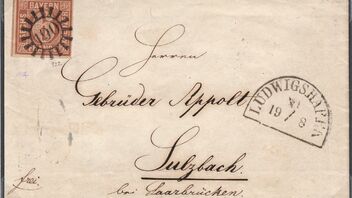 BAYERN
Herren
Gebrüder Appolt
LUDWIGSHAFEN
19 / 8
Sulzbach
frei
bei Saarbrücken.